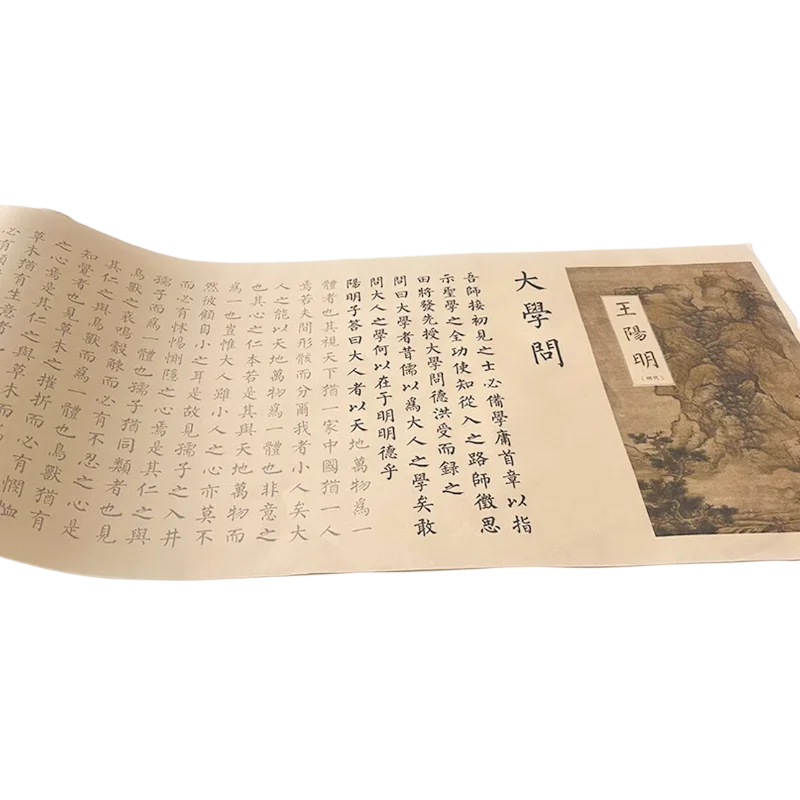 王陽明
(明代)
大學問
吾師接初見之士必備學庸首章以指
示聖學之全功使知從入之路師徵思
田將發先授大學問德洪受而錄之
問曰大學者昔儒以爲大人之學矣敢
問大人之學何以在于明明德乎
陽明子答曰大人者以天地萬物爲一
體者也其視天下猶一家中國猶一人
焉若夫間形骸而分爾我者小人矣大
人之能以天地萬物爲一體也非意之
也其心之仁本若是其與天地萬物而
爲一也豈惟大人雖小人之心亦莫不
然彼顧自小之耳是故見孺子之入井
而必有怵惕惻隱之心焉是其仁之與
孺子而爲一體也孺子猶同類者也見
鳥獸之哀鳴觳觫而必有不忍之心是
其仁之與鳥獸而爲一體也鳥獸猶有
知覺者也見草木之摧折而必有憫恤
之心焉是其仁之與草木而
草木猶有生意者
必有